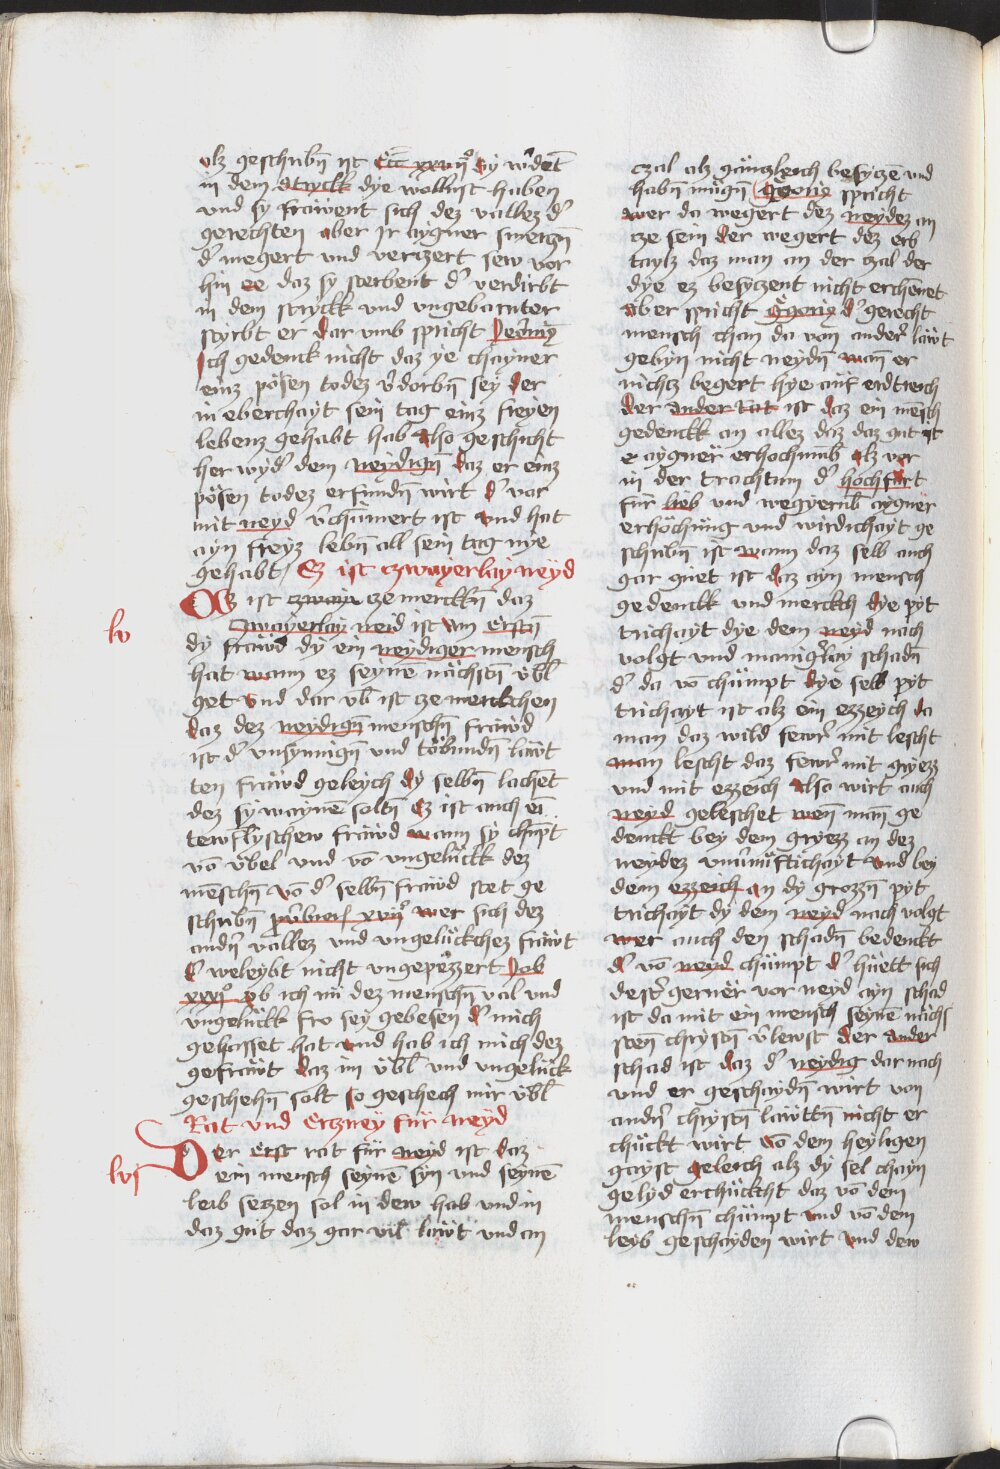 alz geschribn̄ ist Ecc̄ xxvijº Sy w̓dēt
in dem strykk dye wollust haben
vnd sy fräwent sich dez vallez d̓
gerechten aber ir aygner smerczn̄
d̓ megert vnd verczert sew vor
hin ee daz sy sterbent d̓ verdirbt
in dem strykk vnd vngebarnter
styrbt er dar vmb spricht Jeroniḡ
Ich gedenck nicht daz ye chayner
einz pösen todez v̓dorbn̄ sey der
in eberchayt sein tag einz freyen
lebenz gehabt hab also geschicht
her wyd̓ dem neydign̄ daz er einz
pösen todez erfundn̄ wirt d̓ vor
mit neyd v̓chümert ist vnd hat
ayn freyz lebn̄ all sein tag nye
gehabt / Ez ist czwayerlay neyd
Ez ist czway cze merckn̄ daz
lv
czwayerlay neid ist am erstn̄
dy fräwd dy ein neydiger mensch
hat wann ez seynē nächstn̄ vbl̄
get vnd dar vb̄ ist cze merckchen
daz dez neydign̄ menschn̄ fräwd
ist d̓ vnsynnign̄ vnd töbundn̄ läwt
ten fräwd geleych dy selbn̄ lachet
dez sy waynē soltn̄ Ez ist auch ein
tewflyschew fräwd wann sy chūpt
vō v̈bel vnd vō vngelückk dez
mēschn̄ vō d̓ selbn̄ fräwd stet ge
schribn̄ prouerb xvijº wer sich dez
andn̓ vallez vnd vngelückchez fräwt
d̓ beleybt nicht vngepezzert Job
xxxjº ob ich mi dez menschn̄ val vnd
vngelückk fro sey gebesen d̓ mich
gehasset hat vnd hab ich mich dez
gefräwt daz im v̈bl̄ vnd vngelück
geschehn̄ solt so geschech mir v̈bl̄
Rat vnd Erczney für neyd
Der erst rat für neyd ist daz
lvj
ein mensch seynē syn vnd seynē
leib seczen sol in dew hab vnd in
daz gut daz gar vil läwt vnd an
czal alz gänczleich besyczē vnd
habn̄ mügn̄ Gregorig spricht
wer da wegert dez neydez an
cze sein der wegert dez erb
taylz daz man an der czal der
dye ez besyczent nicht erchenet
Aber spricht Gregorig d̓ gerecht
mensch chan da von ander̓ läwt
gebyn nicht neydn̄ wan̄ er
nichcz begert hye auf erdtreich
der ander rat ist daz ein mēsch
gedenckk an allez daz daz gut ist
cze aygner erhochnub̄ alz vor
in der trachtum d̓ hochfart
für lieb vnd wegyernb̄ aygner
erhöchüng vnd wirdichayt ge
schribn̄ ist wann daz selb auch
gar guet ist daz ayn mensch
gedenckk vnd merckch dye pyt
trichayt dye dem neyd nach
volgt vnd manigṙlay schadn̄
d̓ da vō chümpt dye selb pyt
trichayt ist alz ein ezzeych da
man daz wild fewr̓ mit lescht
man lescht daz fewr̓ mit gryezz
vnd mit ezzeich also wirt auch
neyd geleschet wen̄ man̄ ge
denckt bey dem gryezz an dez
neydez vnu̓nüftichayt vnd bey
dem ezzeich an dy grozzn̄ pyt
trichayt dy dem neyd nach volgt
wer auch den schadn̄ bedenckt
d̓ vō neyd chümpt d̓ hüett sich
dest̓ gerner vor neyd ayn schad
ist da mit ein mensch seynē nächs
sten christn̄ v̓lewst der ander
schad ist daz d̓ neydig dar nach
vnd er geschaydn̄ wirt von
andn̓ christn̄ läwttn̄ nicht er
chückt wirt vō dem heyligen
gayst geleich alz dy sel chayn
gelyd erchückcht daz vō dem
menschn̄ chümpt vnd vō dem
leyb geschayden wirt vnd dew